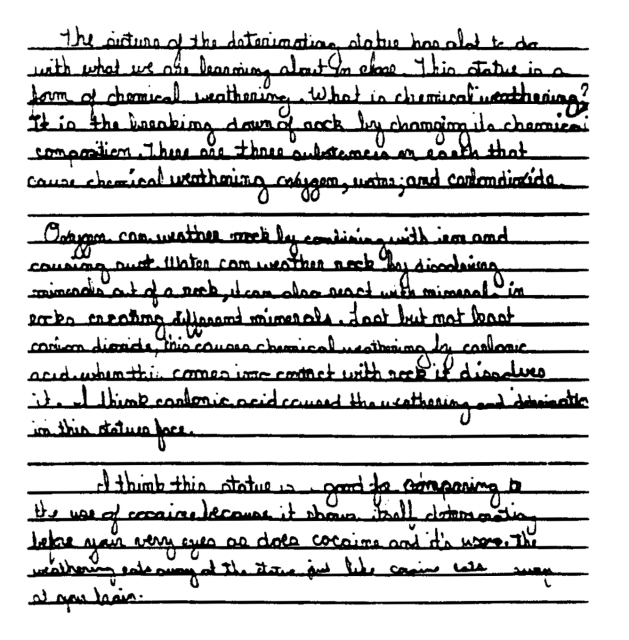 The picture of the deteriorating statue has alot to do
with what we are learning about in class. This statue is a
form of chemical weathering. What is chemical weathering?
It is the breaking down of rock by changing its chemical
composition. There are three substances on earth that
cause chemical weathering oxygen, water, and carbondioxide.
Oxygen can weather rock by combining with iron and
causing rust. Water can weather rock by dissolving
minerals out of a rock, it can also react with minerals in
rocks creating different minerals. Last but not least
carbon dioxide, this causes chemical weathering by carbonic
acid when this comes into contact with rock it dissolves
it. I think carbonic acid caused the weathering and
in this statues face.
I think this statue is good for comparing to
the use of cocaine because it shows itself deteriorating
before your very eyes as does cocaine and it's users. The
weathering eats away at the statue just like cocaine eats away
at your brain.